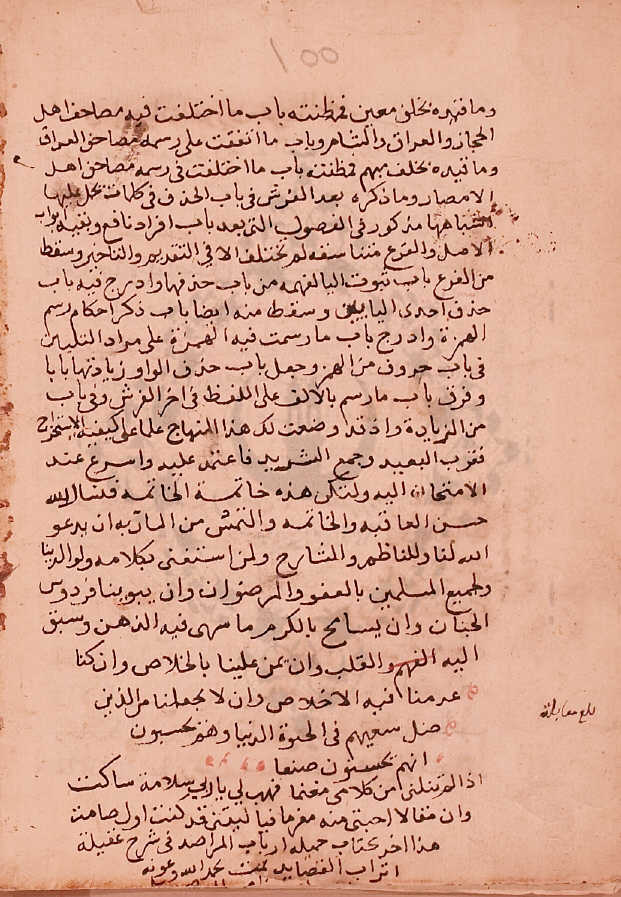 وما قيده بخلف معين فمظنته باب ما اختلفت فيه مصاحف اهل
الحجاز والعراق والشام وباب ما اتفقت على رسمه مصاحف العراق
وما قيده بخلف مبهم فمظنته باب ما اختلفت في رسمه مصاحف اهل
الامصار وما ذكره بعد الفرش في باب الحذف في كلمات تحمل عليها
اشباهها مذكور في الفصول التي بعد باب افراد نافع وبقيه ابواب
الاصل والفرع متناسقه لم تختلف الا في التقديم والتاخير وسقط
من الفرع باب ثبوت اليا لفهمه من باب حذفها وادرج فيه باب
حذف احدى اليايين وسقط منه ايضا باب ذكر احكام رسم
الهمزة وادرج باب ما رسمت فيه الهمزة على مراد التليين
في باب حروف من الهمز وجعل باب حذف الواو زيادتها بابا
وفرق باب ما رسم بالالف على اللفظ في اخر الفرش وفي باب
من الزيادة واذ قد وضعت لك هذا المنهاج علما على كيفية الاستخراج
فقرب البعيد وجمع الشريد فاعتمد عليه واسرع عند
الامتحان اليه ولتكن هذه خاتمة الخاتمه فنسال الله
حسن العاقبه والخاتمه والتمس من المار به ان يدعو
الله لنا وللناظم والشارح ولمن استغنى بكلامه ولوالدينا
ولجميع المسلمين بالعفو والرضوان وان يبوينا فردوس
الجنان وان يسامح بالكرم ما سهى فيه الذهن وسبق
اليه الفهم والقلب وان يمن علينا بالخلاص وان كنا
عدمنا فيه الاخلاص وان لا يجعلنا من الذين
ضل سعيهم في الحيوة الدنيا وهم يحسبون
انهم يحسنون صنعا
اذا لم تنلني من كلامي مغنما فهب لي يا ربي سلامة ساكت
وان مقالا اجتني منه مغرما فيا ليتني قد كنت اول صامت
هذا اخر كتاب جميله ارباب المراصد في شرح عقيلة
اتراب القصايد تمت بحمد الله وعونه
بلغ مقابلة